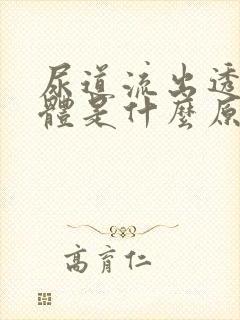 尿道流出透
體是什麼原
高育仁